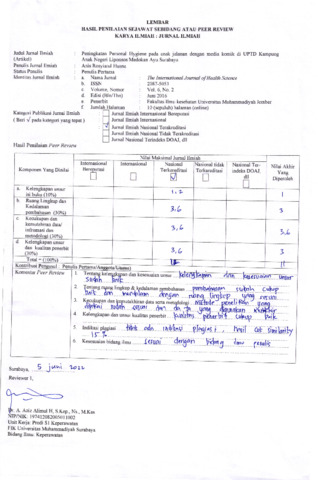 LEMBAR
HASIL PENILAIAN SEJAWAT SEBIDANG ATAU PEER REVIEW
KARYA ILMIAH : JURNAL ILMIAH
Judul Jurnal Ilmiah : Peningkatan Personal Hygiene pada anak jalanan dengan media komik di UPTD Kampung
(Artikel) Anak Negeri Liponsos Medokan Ayu Surabaya
Penulis Jurnal Ilmiah : Anis Rosyiatul Husna
Status Penulis : Penulis Pertama
Identitas Jurnal Ilmiah : a. Nama Jurnal : The International Journal of Health Science
b. ISSN : 2087-5053
c. Volume, Nomor : Vol. 6, No. 2
d. Edisi (bln/Thn) : Juni 2016
e. Penerbit : Fakultas Ilmu kesehatan Universitas Muhammadiyah Jember
f. Jumlah Halaman : 10 (sepuluh) halaman
Kategori Publikasi Jurnal Ilmiah : Jurnal Ilmiah Internasional Bereputasi
( Beri √ pada kategori yang tepat ) Jurnal Ilmiah Internasional
√ Jurnal Ilmiah Nasional Terakreditasi
Jurnal Ilmiah Nasional Tidak Terakreditasi
Jurnal Nasional Terindeks DOAJ, dll
Hasil Penilaian Peer Review
Nilai Maksimal Jurnal Ilmiah
Komponen Yang Dinilai Internasional Bereputasi Internasional Nasional Terakreditasi Nasional tidak Terakreditasi Nasional Terindeks DOAJ, dll Nilai Akhir Yang Diperoleh
a. Kelengkapan unsur isi buku (10%) 1.2 1
b. Ruang Lingkup dan Kedalaman pembahasan (30%) 3,6 3
c. Kecukupan dan kemutahiran data/ informasi dan metodologi (30%) 3,6 3,6
d. Kelengkapan unsur dan kualitas penerbit (30%) 3,6 3
Total = (100%) 12 11
Kontribusi Pengusul Penulis Pertama/Anggota/Utama)
Komentar Peer Review 1. Tentang kelengkapan dan kesesuaian unsur kelengkapan dan kesesuaian unsur
sudah baik
2. Tentang ruang lingkup & kedalaman pembahasan pembahasan sudah cukup
baik dan mendalam dengan ruang lingkup yang sesuai
3. Kecukupan dan kemutakhiran data serta metodologi metode penelitian yang
dipakai sudah sesuai dan data yang digunakan mutakhir
4. Kelengkapan unsur kualitas penerbit kualitas penerbit cukup baik
5. Indikasi plagiasi tidak ada indikasi plagiasi. Hasil cek similarity
15 %
6. Kesesuaian bidang ilmu sesuai dengan bidang ilmu penulis
Surabaya, 5 juni 2022
Reviewer 1,
Dr. A. Aziz Alimul H, S.Kep., Ns., M.Kes
NIP/NIK: 197412082005011002
Unit Kerja: Prodi S1 Keperawatan
FIK Universitas Muhammadiyah Surabaya
Bidang Ilmu: Keperawatan